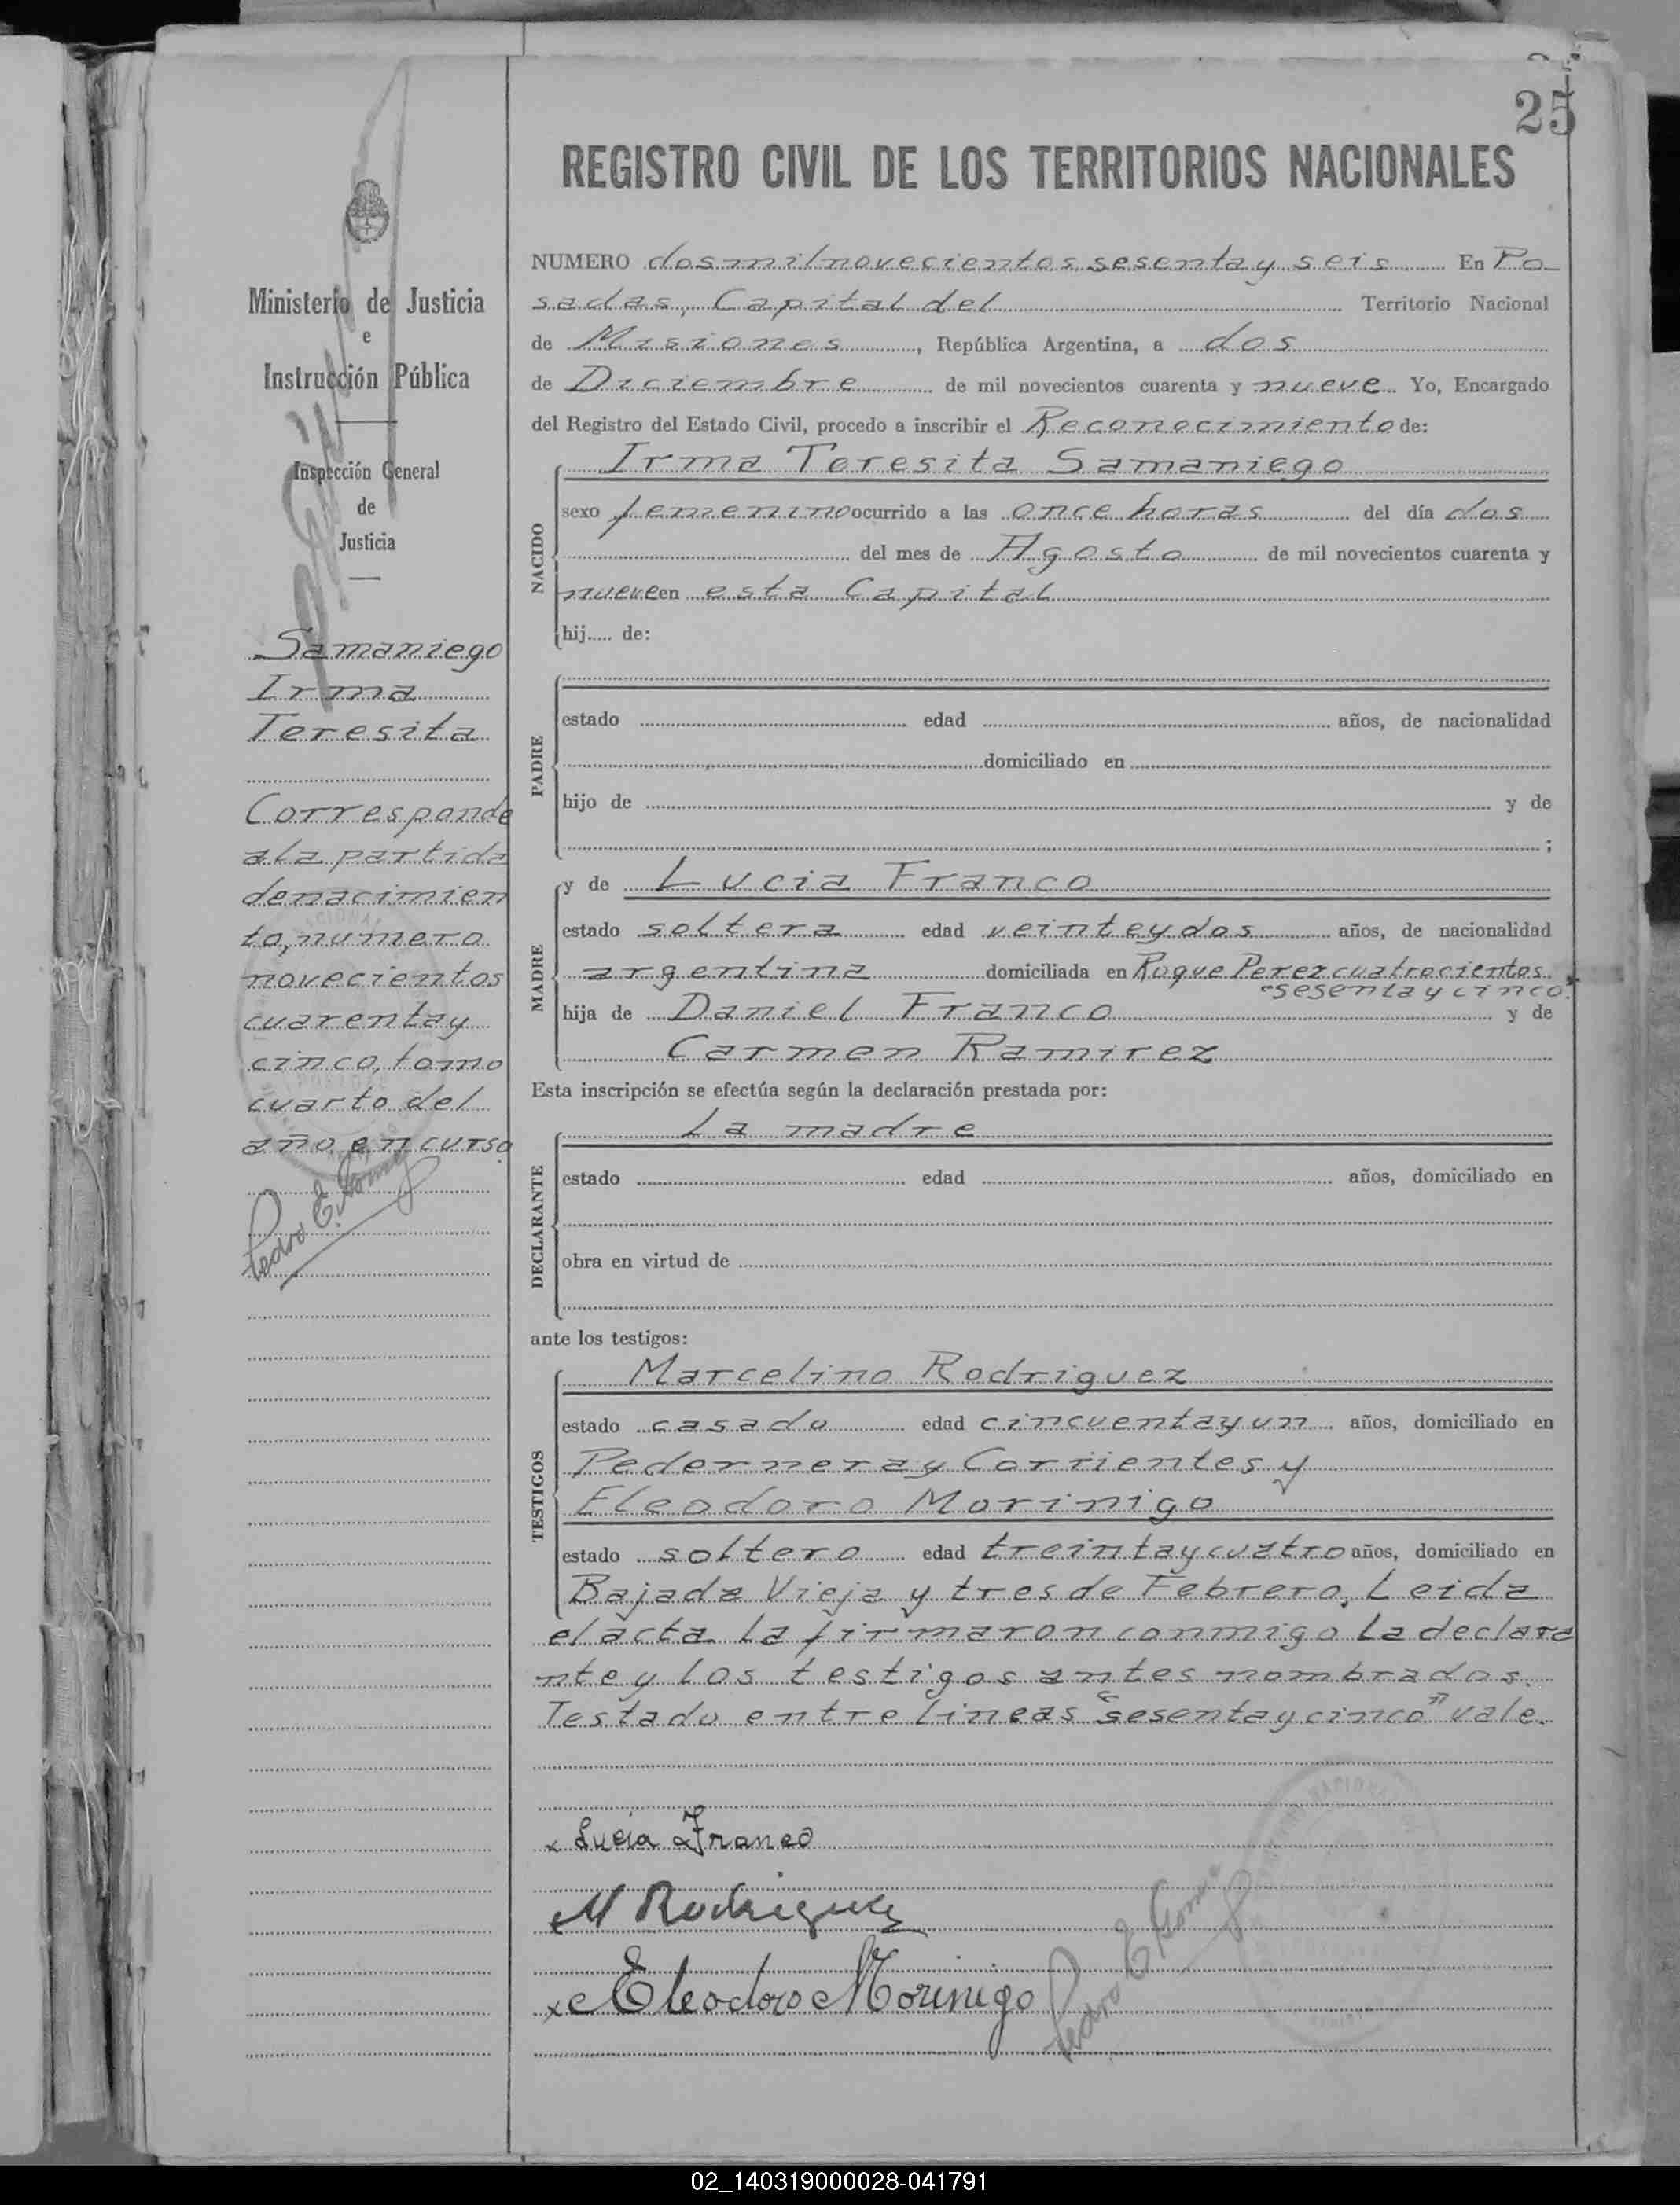 25
REGISTRO CIVIL DE LOS TERRITORIOS NACIONALES
Ministerio de Justicia
e
Instrucción Pública
Inspección General
de
Justicia
Samaniego
Irma
Teresita
Corresponde
a la partida
de nacimien
to, numero
novecientos
cuarenta y
cinco, tomo
cuarto del
año en curso
Pedro E. Gomez
NUMERO dos mil novecientos sesenta y seis En Po-
sadas, Capital del Territorio Nacional
de Misiones, República Argentina, a dos
de Diciembre de mil novecientos cuarenta y nueve Yo, Encargado
del Registro del Estado Civil, procedo a inscribir el Reconocimiento de:
NACIDO
Irma Teresita Samaniego
sexo femenino ocurrido a las once horas del día dos
del mes de Agosto de mil novecientos cuarenta y
nueve en esta Capital
hij..... de:
PADRE
estado edad años, de nacionalidad
domiciliado en
hijo de y de
;
MADRE
y de Lucia Franco
estado soltera edad veinte y dos años, de nacionalidad
argentina domiciliada en Roque Perez cuatrocientos
"sesenta y cinco".
hija de Daniel Franco y de
Carmen Ramirez
Esta inscripción se efectúa según la declaración prestada por:
DECLARANTE
La madre
estado edad años, domiciliado en
obra en virtud de
ante los testigos:
TESTIGOS
Marcelino Rodriguez
estado casado edad cincuenta y un años, domiciliado en
Pedernera y Corrientes y
Eleodoro Morinigo
estado soltero edad treinta y cuatro años, domiciliado en
Bajada Vieja y tres de Febrero. Leida
el acta la firmaron conmigo la declara
nte y los testigos antes nombrados.
Testado entre lineas "sesenta y cinco" vale.
x Lucia Franco
M Rodriguez
x Eleodoro Morinigo
Pedro E Gomez
02_140319000028-041791